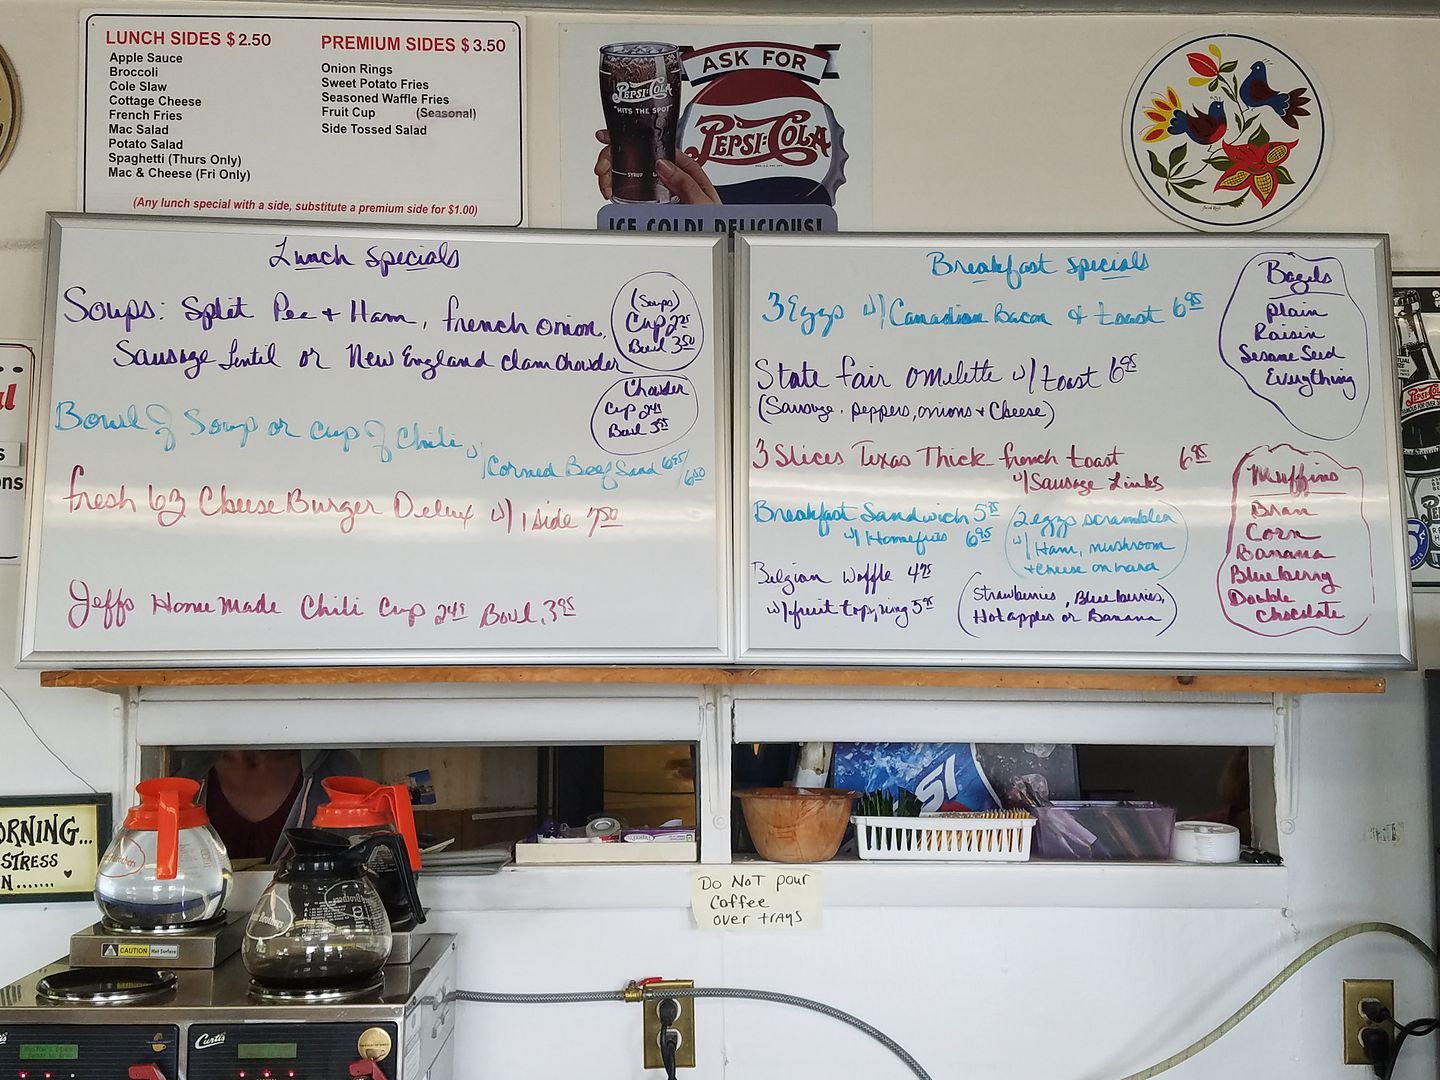 LUNCH SIDES $2.50
Apple Sauce
Broccoli
Cole Slaw
Cottage Cheese
French Fries
Mac Salad
Potato Salad
Spaghetti (Thurs Only)
Mac & Cheese (Fri Only)
PREMIUM SIDES $3.50
Onion Rings
Sweet Potato Fries
Seasoned Waffle Fries
Fruit Cup (Seasonal)
Side Tossed Salad
(Any lunch special with a side, substitute a premium side for $1.00)
ASK FOR
PEPSI-COLA
"HITS THE SPOT"
SYRUP
PEPSI:COLA
ICE COLD! DELICIOUS!
Lunch Specials
Soups: Split Pea + Ham, french onion,
Sausage Lentil or New England Clam Chowder
(Soups)
Cup 2.25
Bowl 3.50
Chowder
Cup
Bowl
Bowl of Soup or Cup of Chili
w/ Corned Beef Sand 6.95/
6.50
fresh 6oz Cheese Burger Delux w/ 1 side 7.50
Jeffs Home Made Chili Cup Bowl 3.95
Breakfast Specials
3 Eggs w/ Canadian Bacon & toast 6.95
State fair omelette w/ toast 6.95
(Sausage, peppers, onions + Cheese)
3 Slices Texas Thick french toast 6.95
w/ Sausage Links
Breakfast Sandwich 5
w/ Homefries 6.95
2 eggs scrambled
w/ Ham, mushroom
+ cheese on hard
Belgian Waffle 4.95
w/ fruit topping 5.95
(Strawberries, Blueberries,
Hot apples or Banana)
Bagels
Plain
Raisin
Sesame Seed
Everything
Muffins
Bran
Corn
Banana
Blueberry
Double
Chocolate
ORNING...
STRESS
N.......
Do NoT pour
Coffee
over trays
CAUTION Hot Surface
Curtis